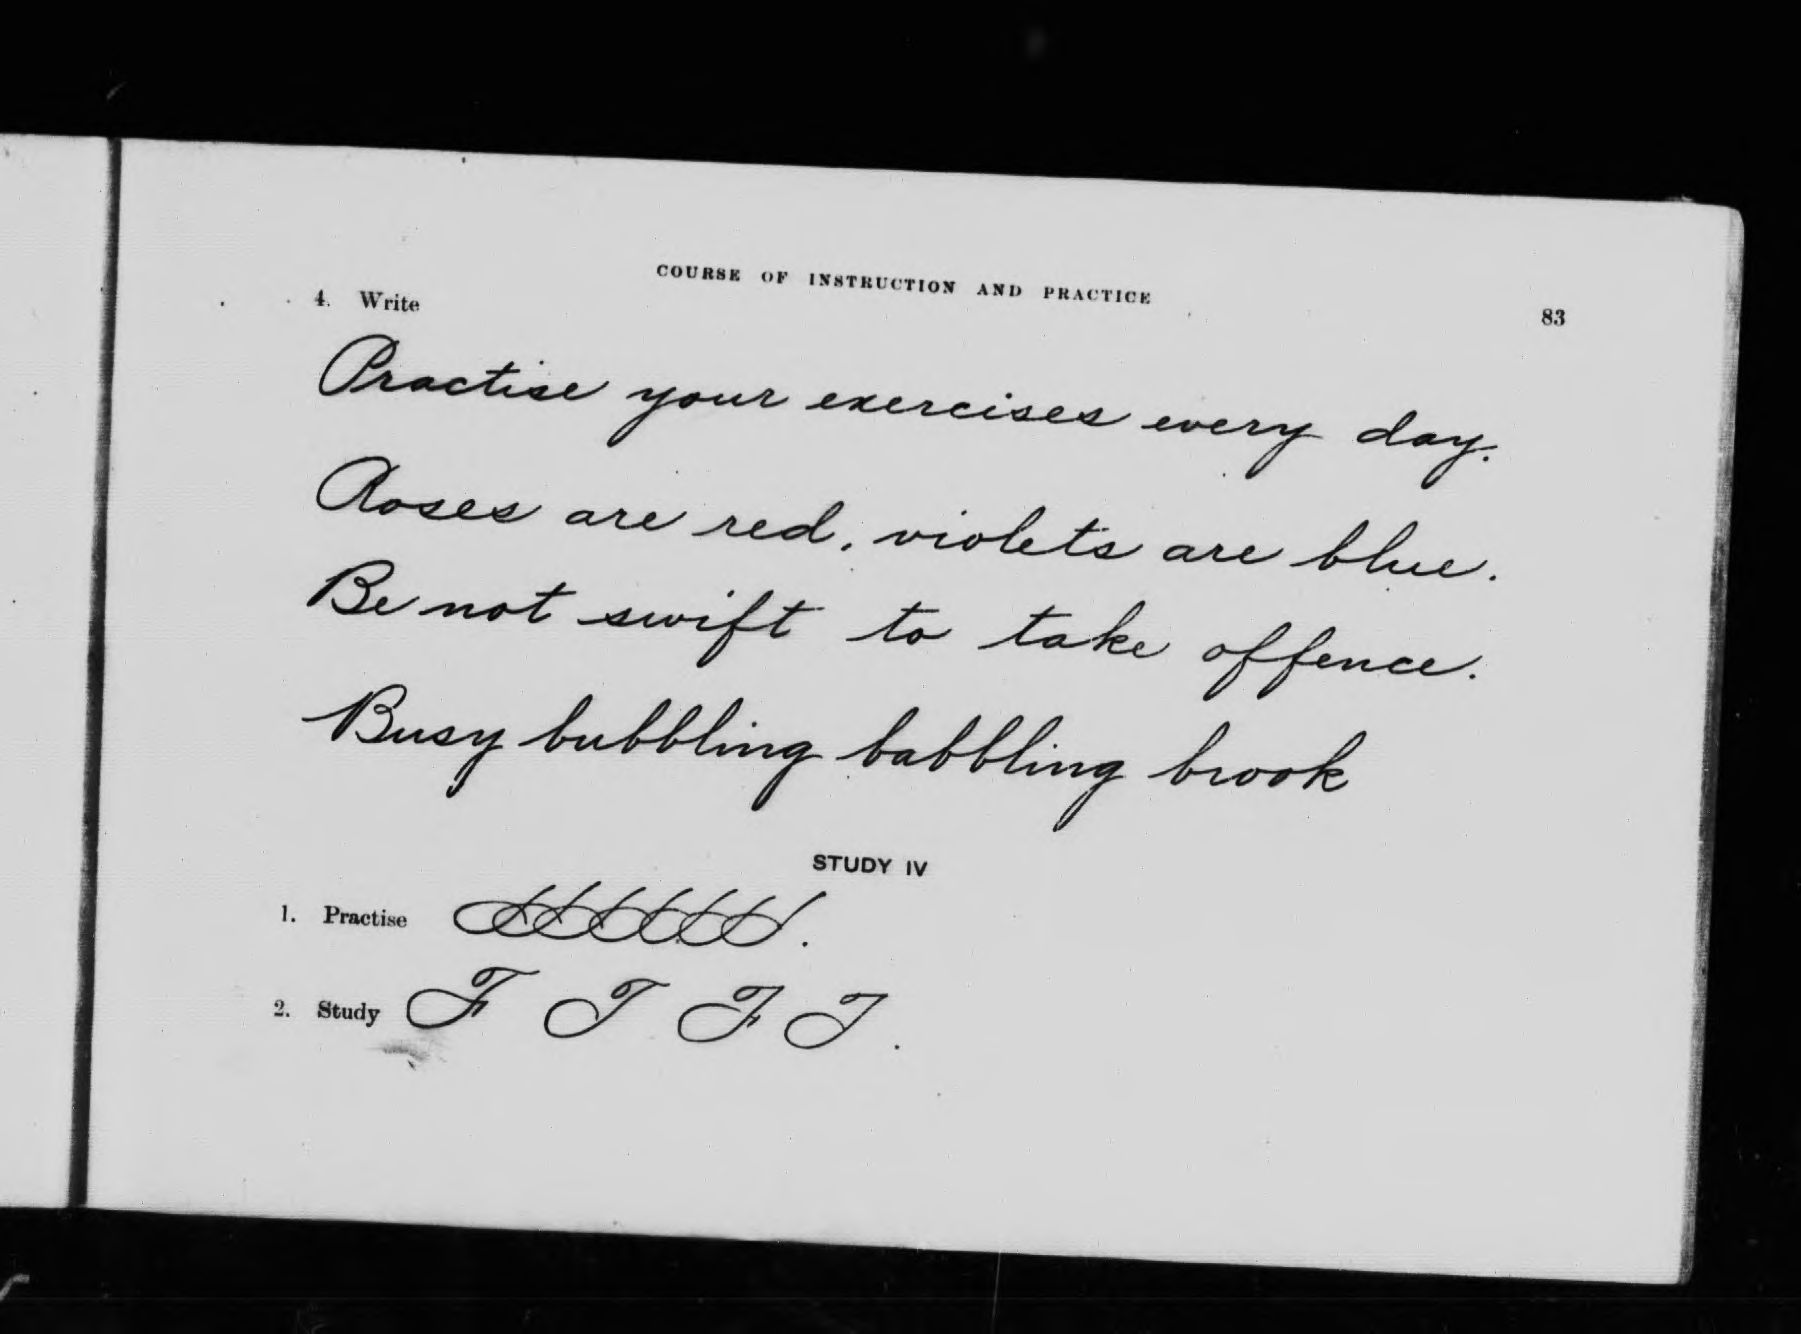 COURSE OF INSTRUCTION AND PRACTICE 83
4. Write
Practise your exercises every day.
Roses are red, violets are blue.
Be not swift to take offence.
Busy bubbling babbling brook
STUDY IV
1. Practise
2. Study F T F T.